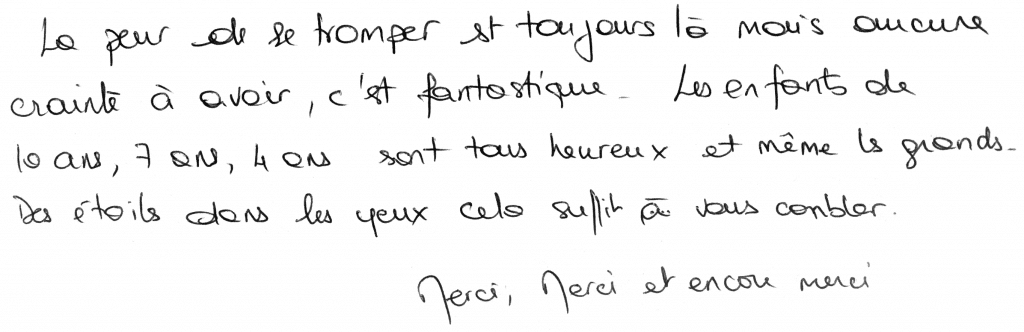 La peur de se tromper est toujours là mais aucune
crainte à avoir, c'est fantastique. Les enfants de
10 ans, 7 ans, 4 ans sont tous heureux et même les grands.
Des étoiles dans les yeux cela suffit à vous combler.
Merci, Merci et encore merci